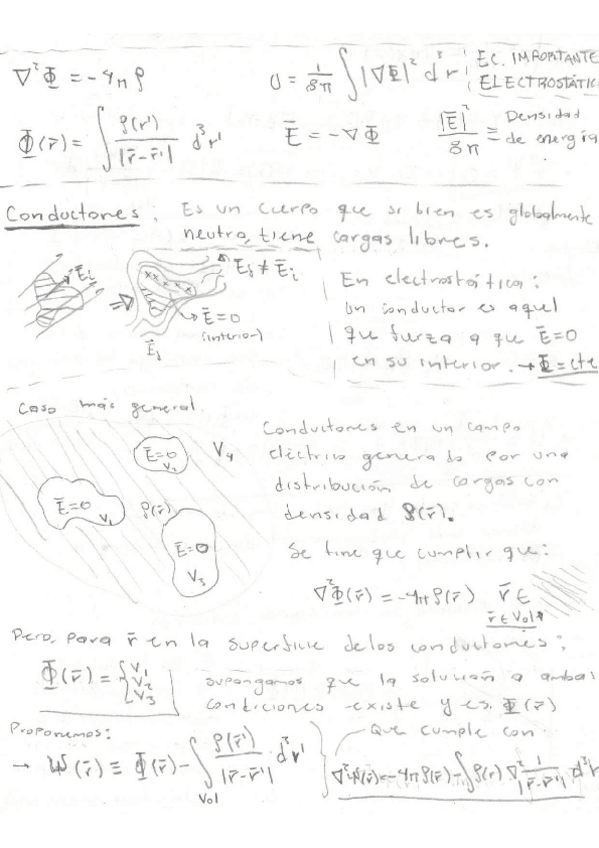 ∇²Φ = -4π ρ
U = 1/8π ∫ |∇Φ|² d³r
EC. IMPORTANTE
ELECTROSTÁTIC
Φ(r̄) = ∫ ρ(r') / |r̄-r̄'| d³r'
Ē = -∇Φ
|Ē|²/8π ≡ Densidad de energía
Conductores: Es un cuerpo que si bien es globalmente
neutro, tiene cargas libres.
Ēi
⇒
Ēf ≠ Ēi
Ē=0
(interior)
Ēf
En electrostática:
Un conductor es aquel
que fuerza a que Ē=0
en su interior. → Φ=cte
Caso más general.
Ē=0
V2
V4
Ē=0
V1
ρ(r̄)
Ē=0
V3
Conductores en un campo
eléctrico generado por una
distribución de cargas con
densidad ρ(r̄).
Se tine que cumplir que:
∇²Φ(r̄) = -4π ρ(r̄) r̄ ∈
r̄ ∈ Vol
Pero, para r̄ en la superficie de los conductores;
Φ(r̄) = { V1 V2 V3
supongamos que la solución a ambas
condiciones existe y es Φ(r̄)
Proponemos:
Que cumple con
→ W(r̄) ≡ Φ(r̄) - ∫Vol ρ(r̄')/|r̄-r̄'| d³r'
∇²W(r̄) = -4π ρ(r̄) - ∫ρ(r̄) ∇² 1/|r̄-r̄'| d³r